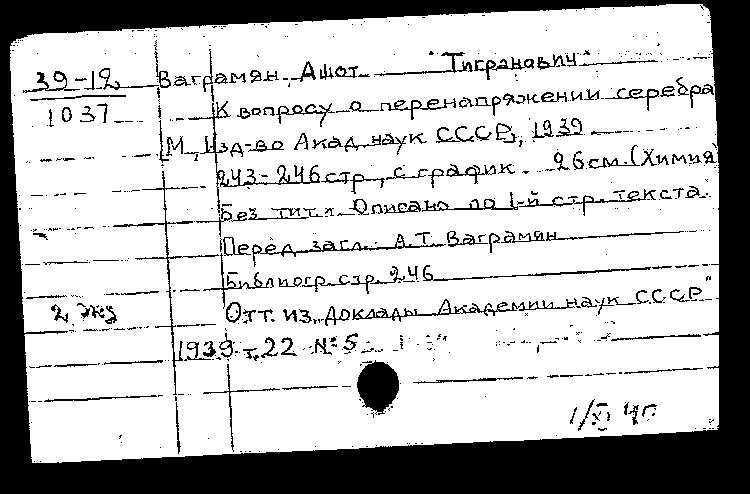 39-12 Ваграмян, Ашот "Тигранович"
1037 К вопросу о перенапряжении серебра
М., Изд-во Акад. наук СССР, 1939
243-246 стр., с график. 26 см. (Химия)
Без тит. л. Описано по 1-й стр. текста.
Перед загл.: А.Т. Ваграмян
Библиогр. стр. 246
2 экз Отт. из „Доклады Академии наук СССР"
1939 т. 22 № 5
1/XI 40